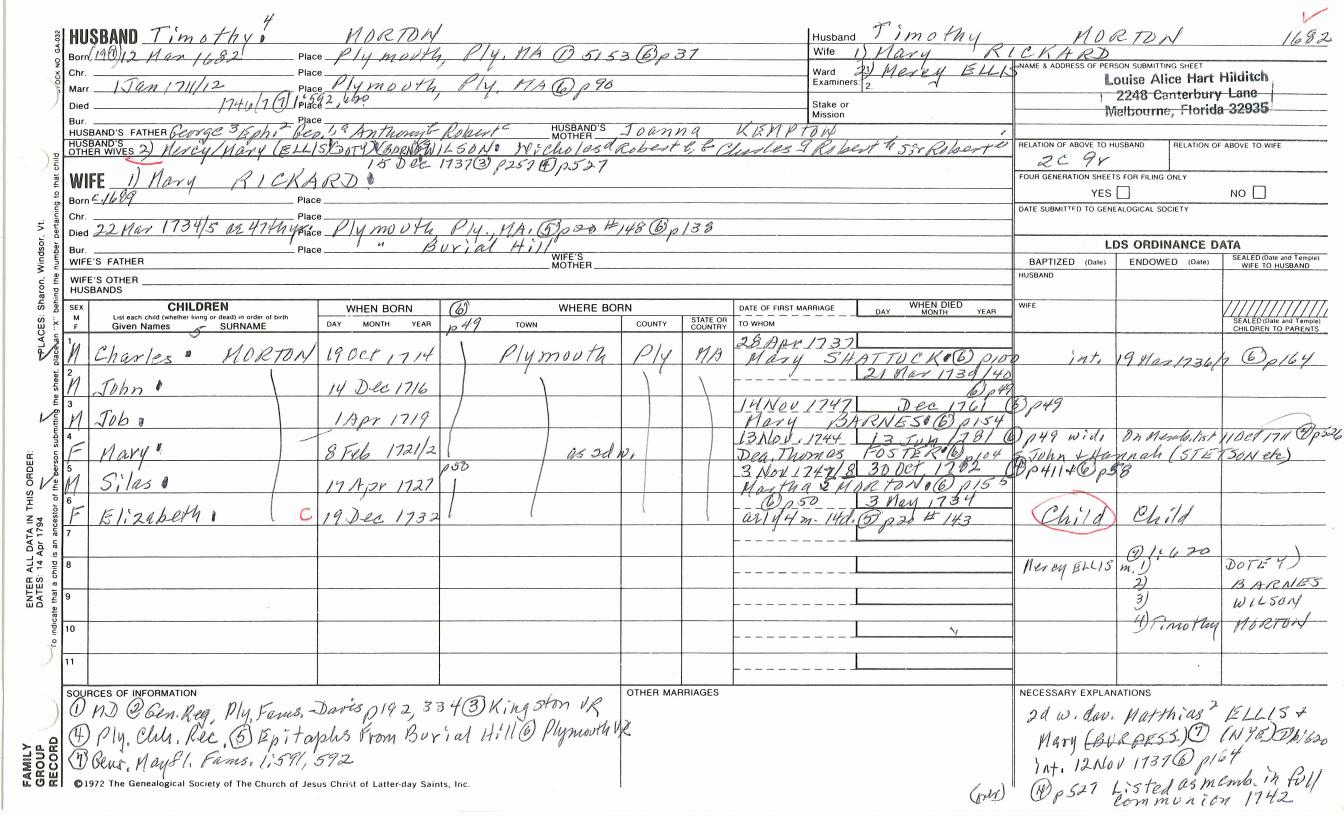 HUSBAND Timothy 4 MORTON
Born 12 Mar 1682 Place Plymouth, Ply, MA ① 5153 ⑥ p37
Chr. Place
Marr 1 Jan 1711/12 Place Plymouth, Ply. MA ⑥ p90
Died 1746/7 ⑦ 1:592, 620 Place
Bur. Place
HUSBAND'S FATHER George 3 Eph 2 Geo. 1 Anthony Robert HUSBAND'S MOTHER Joanna KEMPTON
HUSBAND'S OTHER WIVES 2) Mercy/Mary (ELLIS) WILSON. Nicholas Robert Charles Robert Sir Robert
15 Dec 1737 ③ p257 ④ p527
WIFE 1) Mary RICKARD
Born c1689 Place
Chr. Place
Died 22 Mar 1734/5 ae 47th yr. Place Plymouth Ply., MA. ⑤ p20 #148 ⑥ p138
Bur. Place " Burial Hill
WIFE'S FATHER WIFE'S MOTHER
WIFE'S OTHER HUSBANDS
Husband Timothy MORTON 1682
Wife 1) Mary RICKARD
2) Mercy ELLIS
Ward Examiners 2.
Stake or Mission
NAME & ADDRESS OF PERSON SUBMITTING SHEET
Louise Alice Hart Hilditch
2248 Canterbury Lane
Melbourne, Florida 32935
RELATION OF ABOVE TO HUSBAND RELATION OF ABOVE TO WIFE
2c 9r
FOUR GENERATION SHEETS FOR FILING ONLY
YES NO
DATE SUBMITTED TO GENEALOGICAL SOCIETY
LDS ORDINANCE DATA
BAPTIZED (Date) ENDOWED (Date) SEALED (Date and Temple) WIFE TO HUSBAND
HUSBAND
WIFE
SEALED (Date and Temple) CHILDREN TO PARENTS
SEX M F
CHILDREN
List each child (whether living or dead) in order of birth
Given Names 5 SURNAME
WHEN BORN
DAY MONTH YEAR
⑥ p49
WHERE BORN
TOWN COUNTY STATE OR COUNTRY
DATE OF FIRST MARRIAGE
TO WHOM
WHEN DIED
DAY MONTH YEAR
1 M Charles MORTON 19 Oct 1714 Plymouth Ply MA 28 Apr 1737
Mary SHATTUCK ⑥ p100 int. 19 Mar 1736/7 ⑥ p164
2 M John 14 Dec 1716 21 Mar 1739/40
⑥ p49
3 M Job 1 Apr 1719 14 Nov 1747 Dec 1761 ⑥ p49
Mary BARNES ⑥ p154
4 F Mary 8 Feb 1721/2 as 2d w. 13 Nov. 1744 13 Jun 1781 ⑥ p49 wid. On Memb. list 11 Oct 1711 ④ p526
Dea. Thomas FOSTER ⑥ p104 John & Hannah (STETSON etc)
5 M Silas p50 17 Apr 1727 3 Nov 1747/8 30 Oct 1782 ④ p411 & ⑥ p58
Martha 2 MORTON ⑥ p155
6 F Elizabeth C 19 Dec 1732 ⑥ p50 3 May 1734
ae 1y 4m. 14d. ⑤ p20 #143 Child Child
7
8
9
10
11
⑦ 1:620
Mercy ELLIS m. 1) DOTEY)
2) BARNES
3) WILSON
4) Timothy MORTON
SOURCES OF INFORMATION
① MD ② Gen. Reg, Ply. Fams. - Davis p192, 334 ③ Kingston VR
④ Ply. Chh. Rec. ⑤ Epitaphs From Burial Hill ⑥ Plymouth VR
⑦ Gen. Mayfl. Fams. 1:591, 592
OTHER MARRIAGES
NECESSARY EXPLANATIONS
2d w. dau. Matthias 2 ELLIS &
Mary (BURGESS) ⑦ 1:620
int. 12 Nov 1737 ⑥ p164
④ p527 Listed as memb. in full
communion 1742
(over)
©1972 The Genealogical Society of The Church of Jesus Christ of Latter-day Saints, Inc.
FAMILY GROUP RECORD
ENTER ALL DATA IN THIS ORDER:
DATES: 14 Apr 1794
PLACES: Sharon, Windsor, Vt.
To indicate that a child is an ancestor of the person submitting the sheet, place an "X" behind the number pertaining to that child
STOCK NO. GA-032